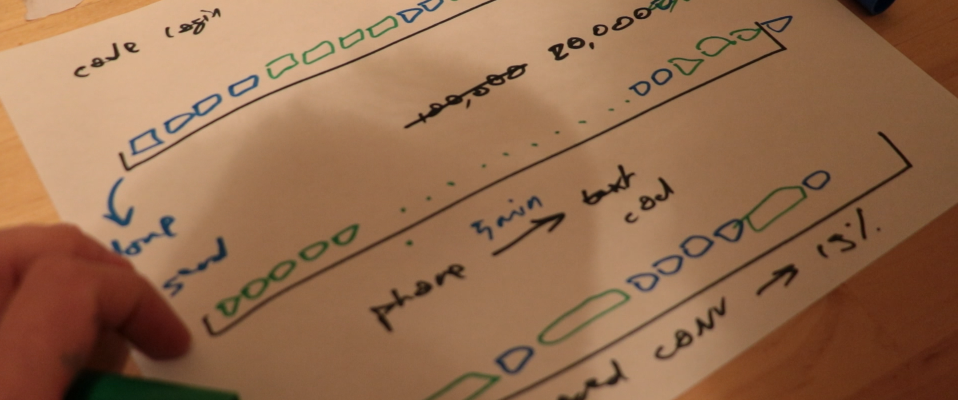 code login
100,000 20,000
done
send
phone 5 min → text
code
conv → 15%